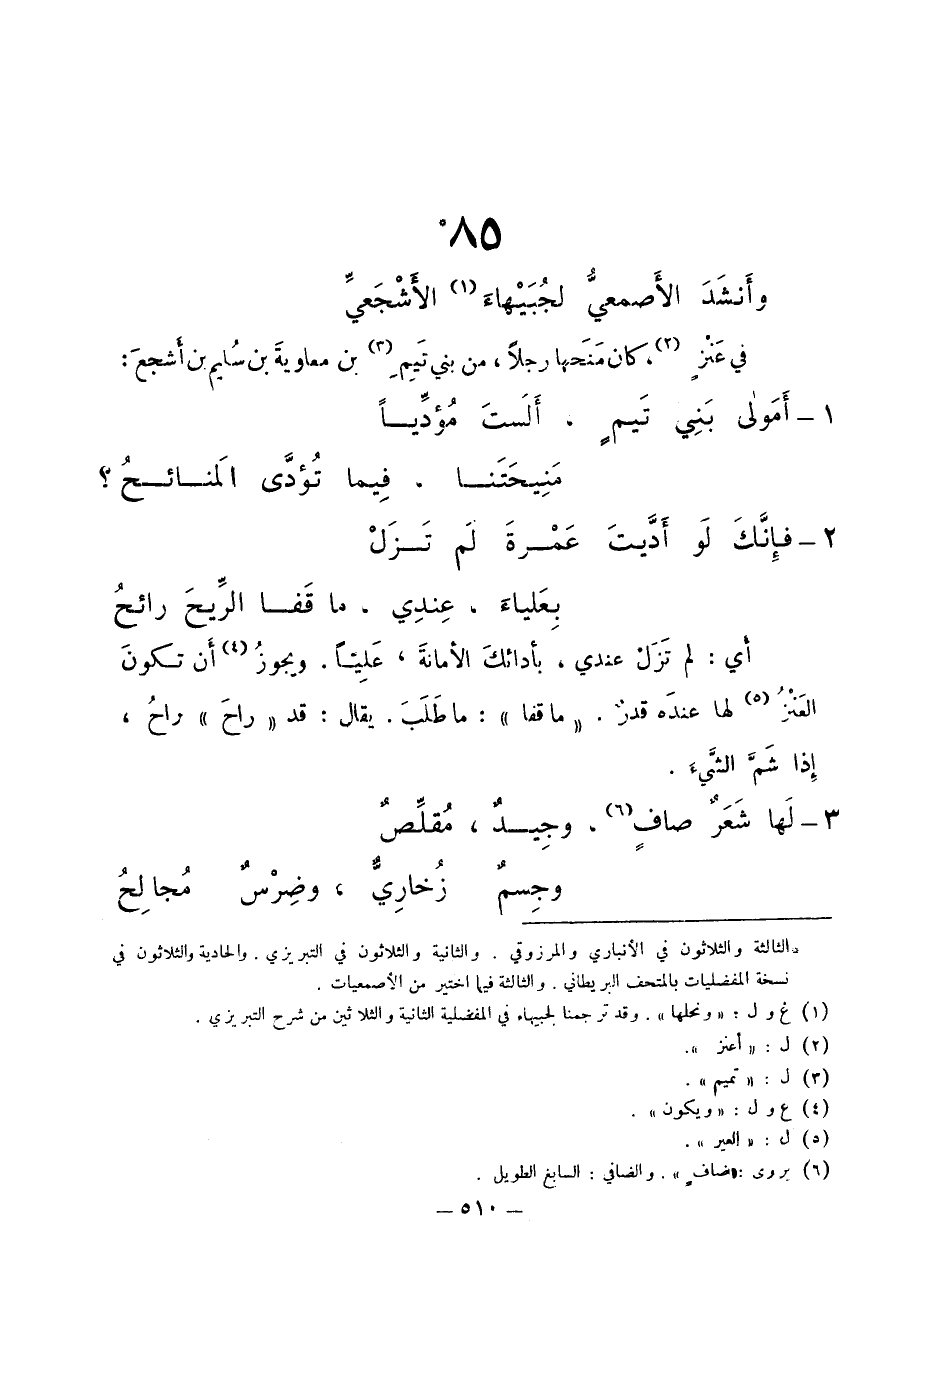 ٨٥*
وأَنشَدَ الأَصمعيُّ لجُبَيْهاءَ (١) الأَشْجَعيِّ
في عَنْزٍ (٢)، كان مَنَحها رجلاً، من بني تَيمِ (٣) بن معاويةَ بن سُليم بن أَشجعَ:
١ - أَمَولَى بَنِي تَيمٍ . أَلَستَ مُؤدِّيـــاً
مَنِيحَتَنـــا . فِيما تُؤدَّى المَنـــائـــحُ؟
٢ - فإِنَّكَ لَو أَدَّيتَ عَمْـــرةَ لَم تَـــزَلْ
بِعَلياءَ . عِندِي . ما قَفـــا الرِّيحَ رائحُ
أي: لم تَزَلْ عندي، بأدائكَ الأمانةَ، عَليّاً. ويجوزُ (٤) أَن تـكونَ
العَنْزُ (٥) لها عندَه قدرٌ. «ما قفا»: ما طَلَبَ. يقال: قد «راحَ» يَراحُ،
إِذا شَمَّ الشَّيءَ.
٣ - لَها شَعَرٌ صافٍ (٦) . وجِيـــدٌ، مُقلِّصٌ
وجِسمٌ زُخارِيٌّ، وضِرْسٌ مُجالِحُ
* الثالثة والثلاثون في الأنباري والمرزوقي . والثانية والثلاثون في التبريزي . والحادية والثلاثون في
نسخة المفضليات بالمتحف البريطاني . والثالثة فيما اختير من الأصمعيات .
(١) ع و ل: «ونحلها» . وقد ترجمنا لجبيهاء في المفضلية الثانية والثلاثين من شرح التبريزي .
(٢) ل: «أعنز».
(٣) ل: «تميم» .
(٤) ع و ل: «ويكون» .
(٥) ل: «العير» .
(٦) يروى: «ضافٍ» . والضافي: السابغ الطويل .
— ٥١٠ —